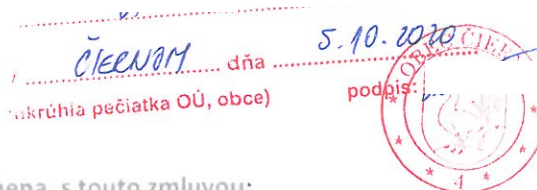 V ČIERNOM dňa 5.10.2020
(okrúhla pečiatka OÚ, obce) podpis:
OBEC ČIER
1
s touto zmluvou: